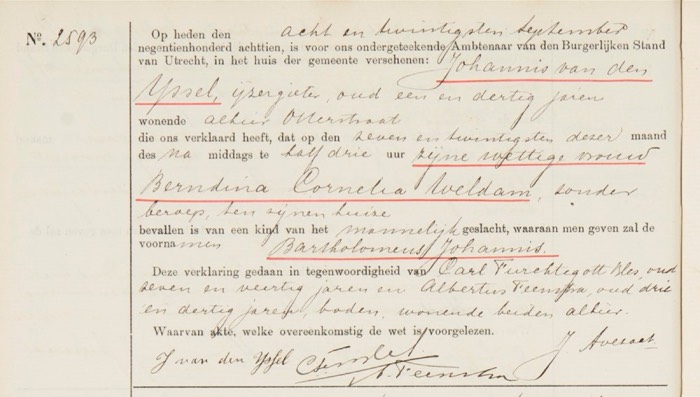 Nº. 2593
Op heden den acht en twintigsten September
negentienhonderd achttien, is voor ons ondergeteekende Ambtenaar van den Burgerlijken Stand
van Utrecht, in het huis der gemeente verschenen: Johannis van den
Yssel, ijzergieter, oud een en dertig jaren
wonende alhier Otterstraat
die ons verklaard heeft, dat op den zeven en twintigsten dezer maand
des na middags te half drie uur zijne wettige vrouw
Berndina Cornelia Weldam, zonder
beroep, ten zijnen huize
bevallen is van een kind van het mannelijk geslacht, waaraan men geven zal de
voornamen Bartholomeus Johannis.
Deze verklaring gedaan in tegenwoordigheid van Carl Furchtegott Bles, oud
zeven en veertig jaren en Albertus Feenstra, oud drie
en dertig jaren, boden, wonende beiden alhier.
Waarvan akte, welke overeenkomstig de wet is voorgelezen.
J van den Yssel
A. Feenstra